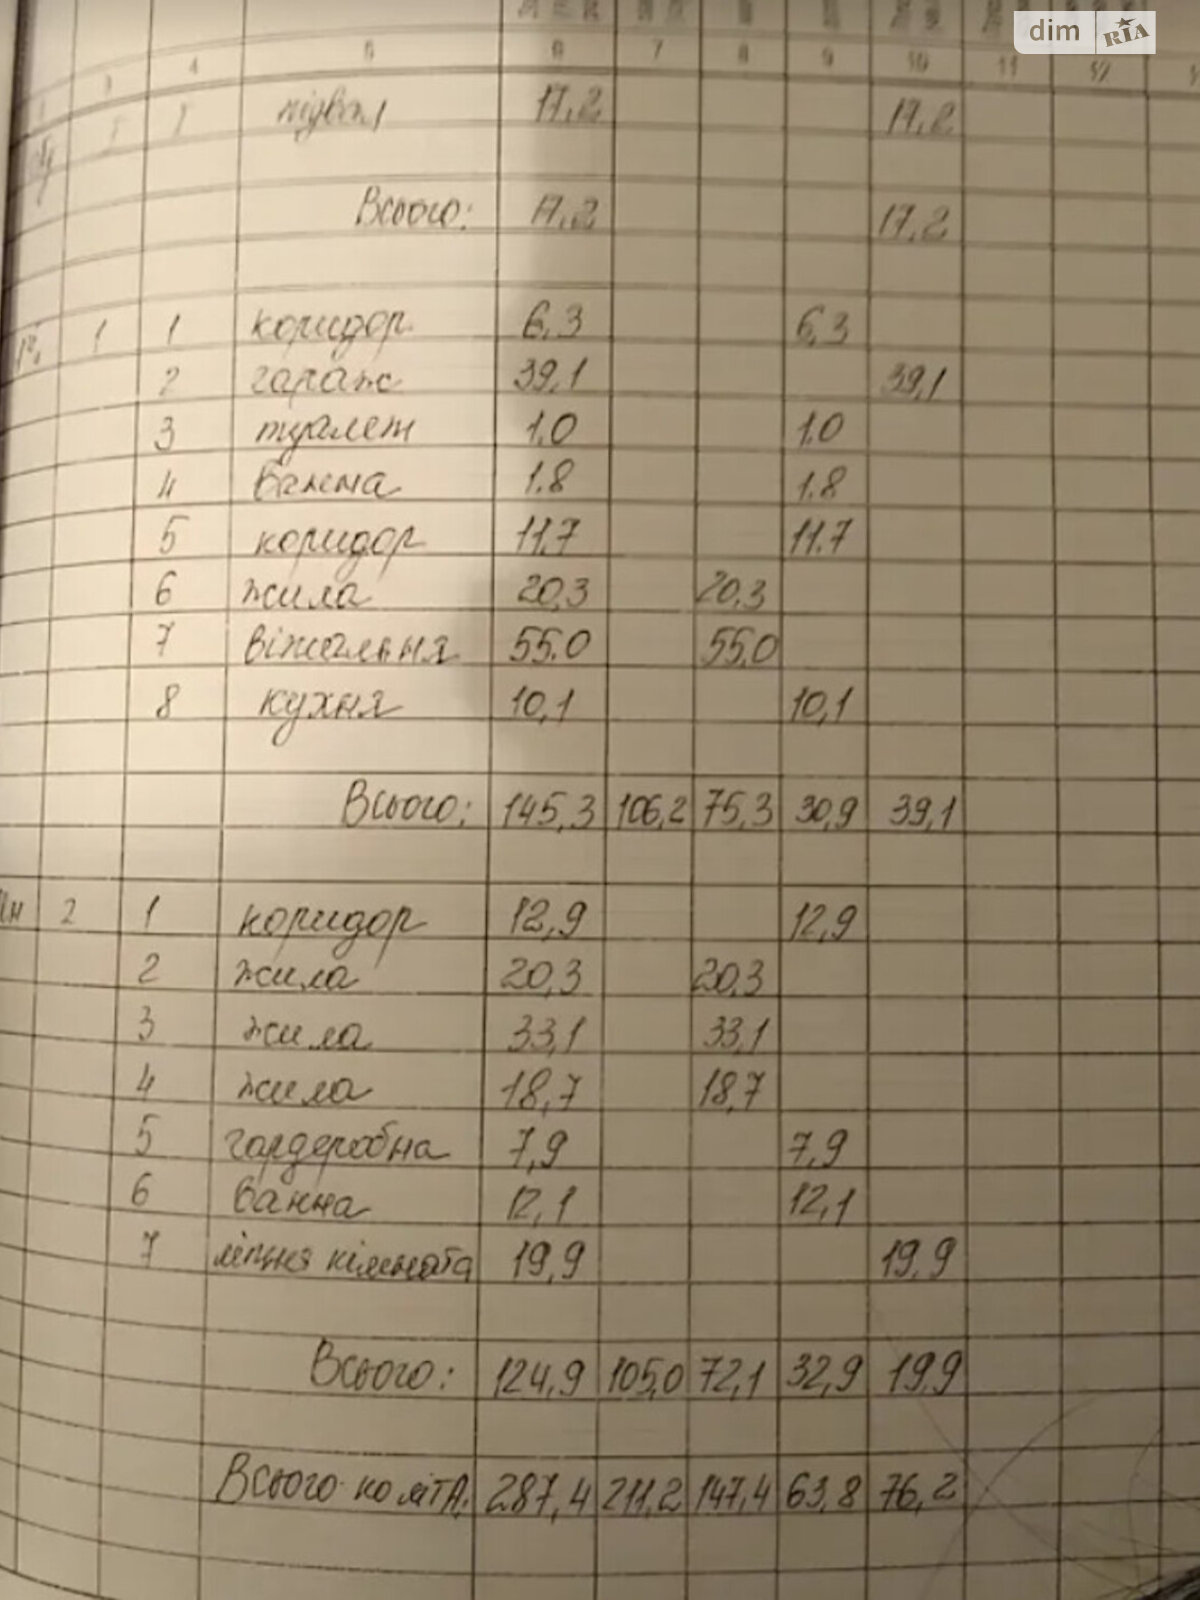 dim RIA
3 4 5 6 7 8 9 10 11 12
1 1 підвал 17.2 17.2
Всього: 17.2 17.2
1 1 коридор 6,3 6,3
2 гараж 39,1 39,1
3 туалет 1.0 1.0
4 ванна 1.8 1.8
5 коридор 11.7 11.7
6 жила 20,3 20.3
7 віжальня 55.0 55,0
8 кухня 10,1 10,1
Всього: 145,3 106,2 75,3 30,9 39,1
2 1 коридор 12,9 12,9
2 жила 20,3 20,3
3 жила 33,1 33,1
4 жила 18,7 18,7
5 гардеробна 7,9 7,9
6 ванна 12,1 12,1
7 літня кімната 19,9 19,9
Всього: 124,9 105,0 72,1 32,9 19,9
Всього по літ А: 287,4 211,2 147,4 63,8 76,2